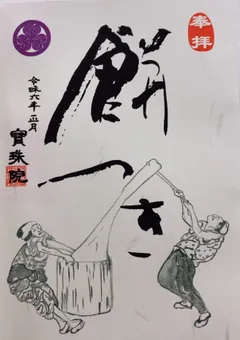 奉拝
餅つき
令和六年 正月
寳珠院